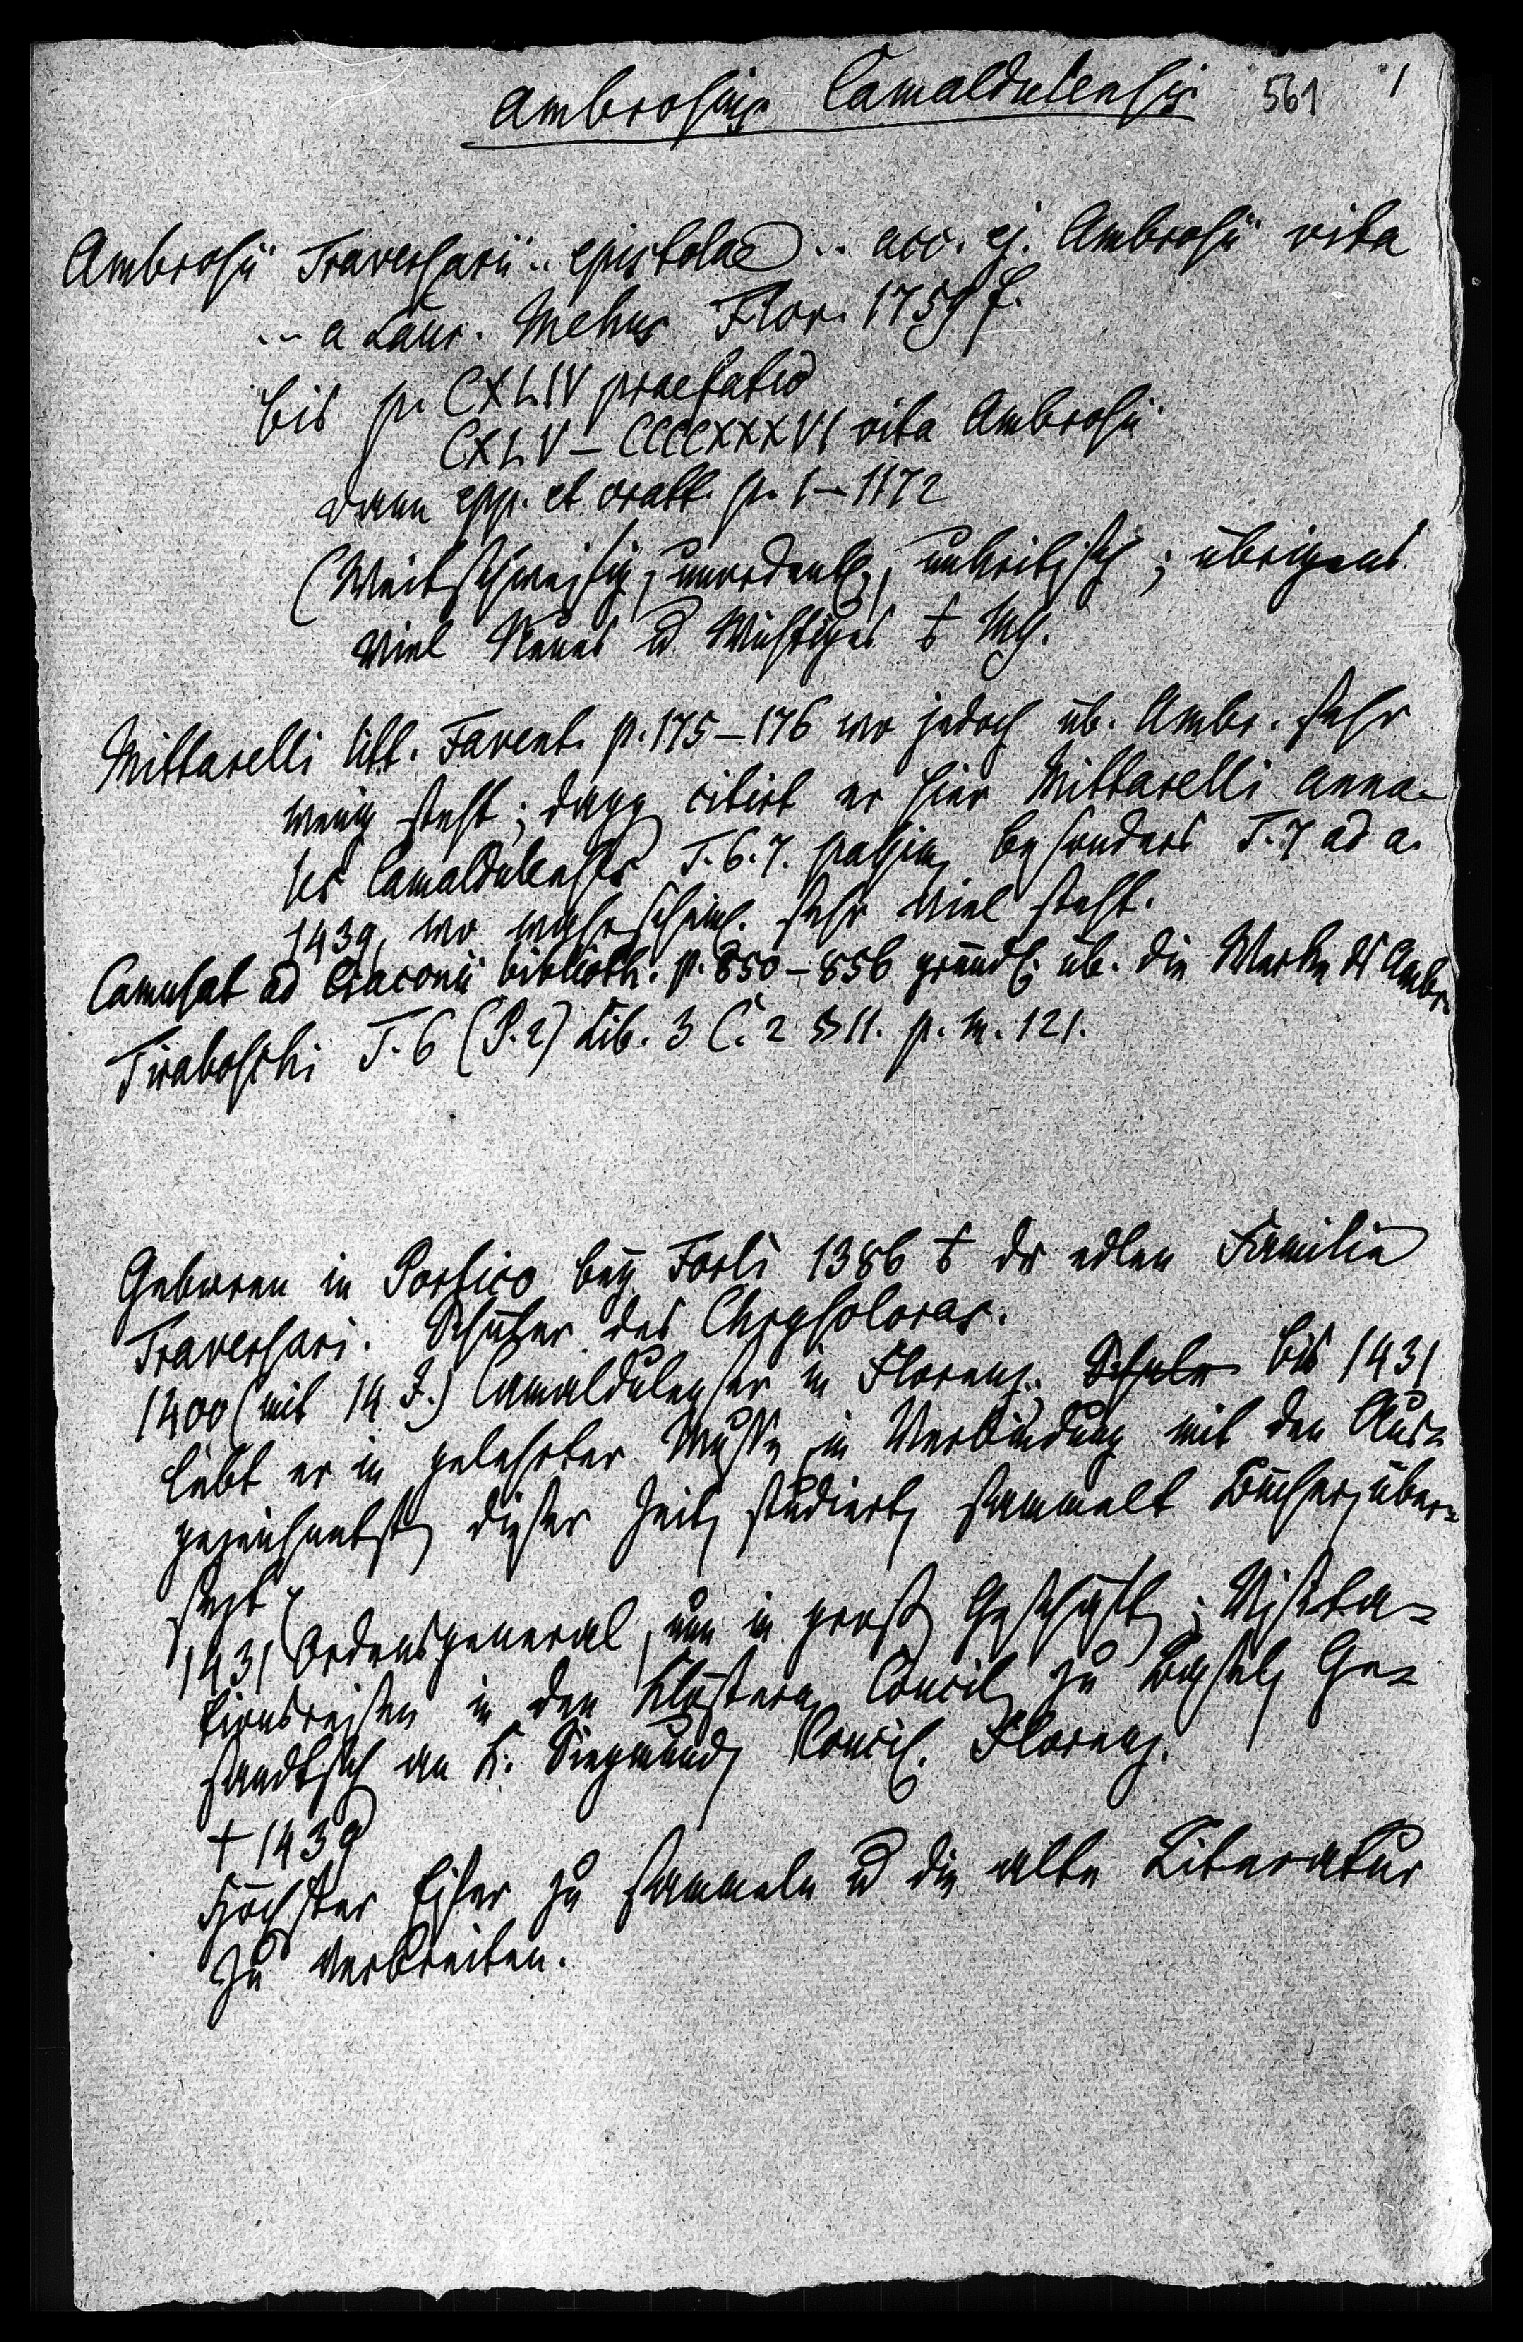 Ambrosius Camaldulensis 561 1
Ambrosii Traversarii .. epistolae .. acc. ej. Ambrosii vita
... a Laur. Mehus Flor. 1759 f.
bis p. CXLIV praefatio
CXLV – CCCCXXXVI vita Ambrosii
dann epp. et oratt. p. 1–1172
(Weitschweifig, unordentl., unkritisch; übrigens
viel Neues u Wichtiges
Mittarelli litt. Favent. p. 175–176 wo jedoch üb. Ambr. sehr
wenig steht; dagg citirt er hier Mittarelli anna-
les Camaldulenses T. 6. 7. passim, besonders T. 7 ad a.
1439, wo wahrscheinl. sehr viel steht.
Camusat ad Ciaconii biblioth. p. 850–856 gründl. üb. die Werke des Ambr.
Tiraboschi T. 6 (P. 2) Lib. 3 C. 2 § 11. p. m. 121.
Geboren in Portico bey Forli 1386 der edlen Familie
Traversari. Schüler des Chrysoloras.
1400 (mit 14 J.) Camaldulenser in Florenz. Schule bis 1431
lebt er in gelehrter Musse, in Verbindung mit den Aus-
gezeichnetsten dieser Zeit, studiert, sammelt Bücher, über-
setzt
1431 Ordensgeneral, nun in grossen Geschäften; Visita-
tionsreisen in den Klöstern, Concil zu Basel, Ge-
sandtsch an K. Siegmund, Concil. Florenz.
† 1439
Höchster Eifer zu sammeln u die alte Literatur
zu verbreiten.